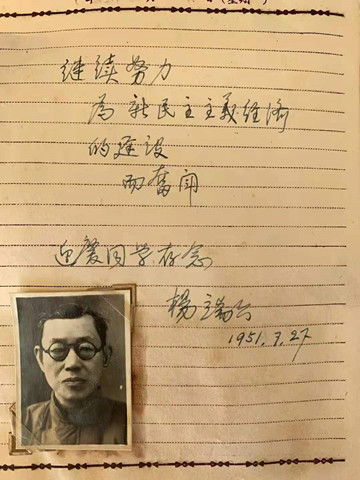 继续努力
为新民主主义经济
的建设
而奋闘
同学存念
1951.7.27